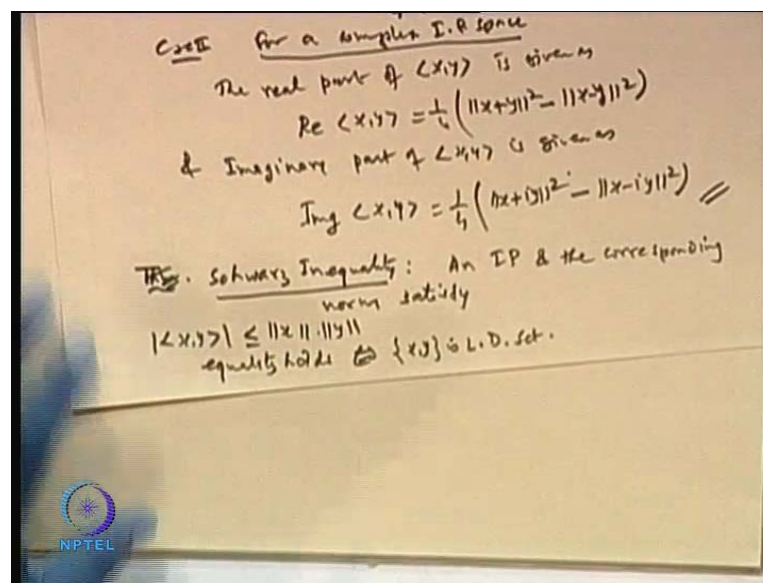 Case II For a complex I.P. space
The real part of <x,y> is given as
Re <x,y> = 1/4 (||x+y||² - ||x-y||²)
& Imaginary part of <x,y> is given as
Img <x,y> = 1/4 (||x+iy||² - ||x-iy||²) //
Schwarz Inequality : An IP & the corresponding
norm satisfy
|<x,y>| ≤ ||x|| . ||y||
equality holds ⇔ {x,y} is L.D. set.
NPTEL